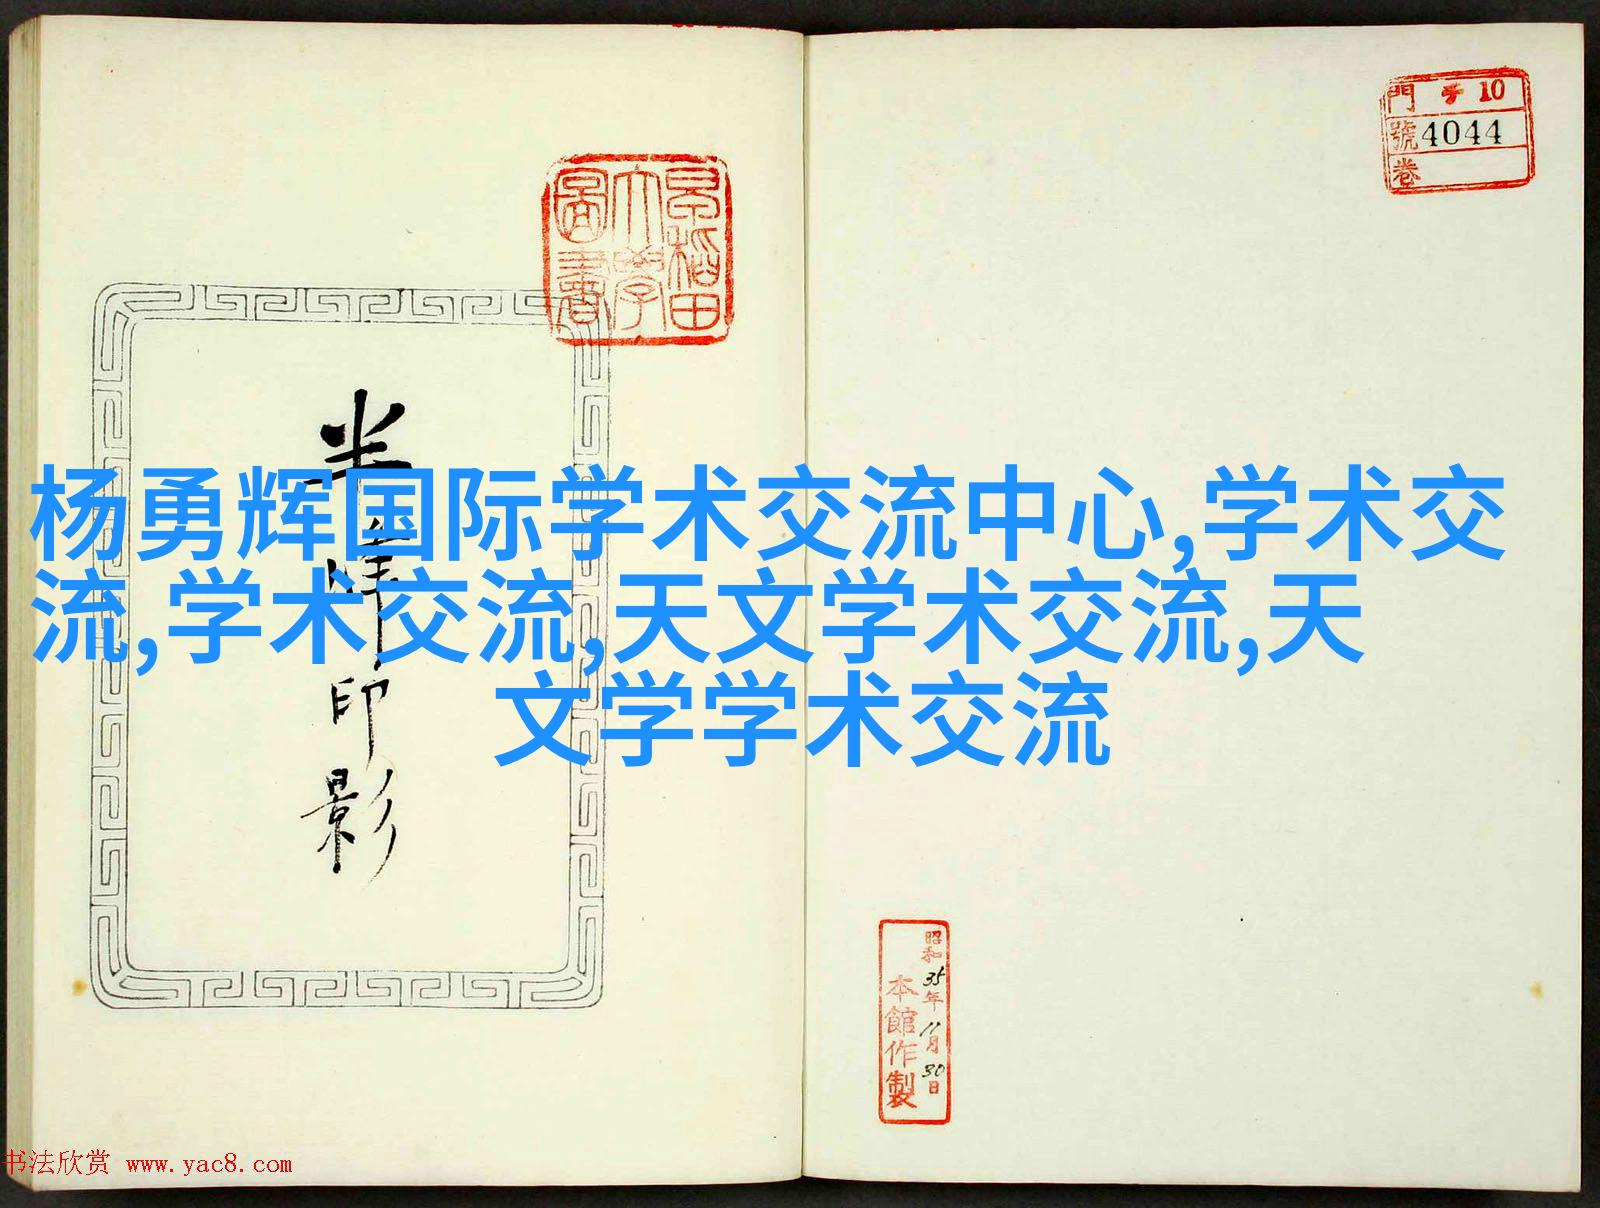 門 10
號 4044
卷
早稻田
大學
圖書
半峰印影
杨勇辉国际学术交流中心,学术交
流,学术交流,天文学术交流,天
文学学术交流
昭和35年11月30日
本館作製
书法欣赏 www.yac8.com